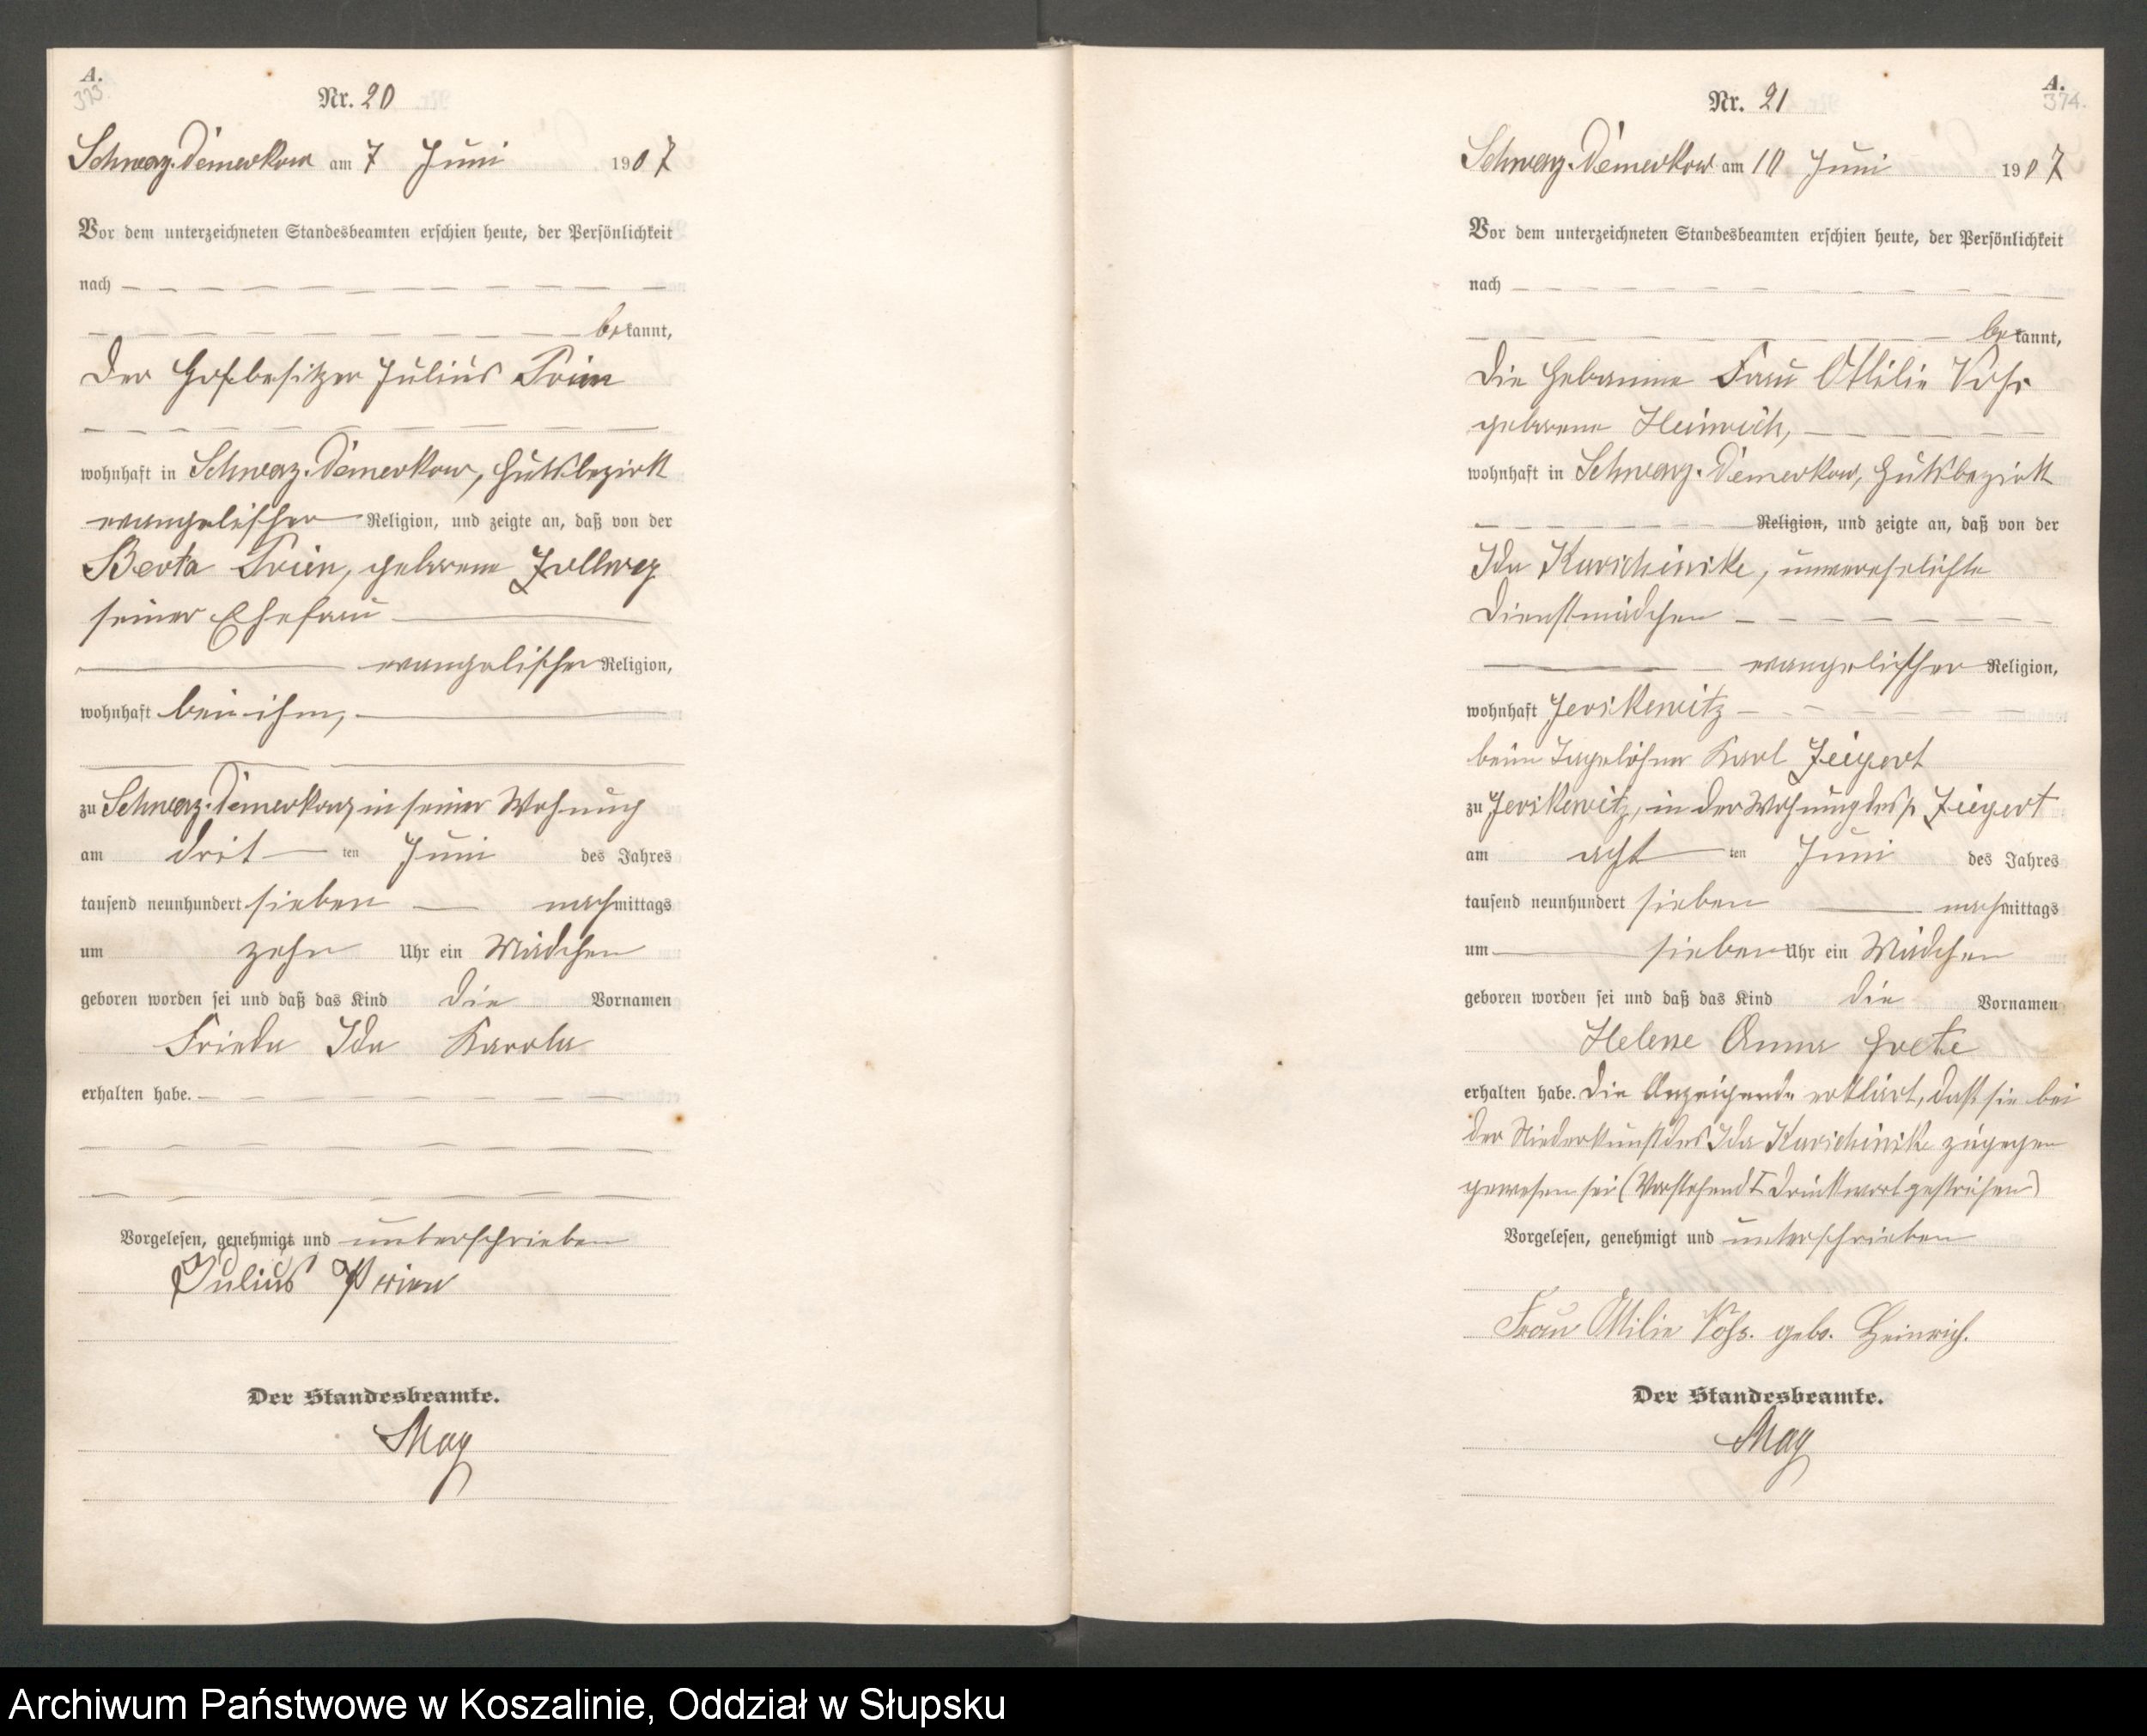 A.
373.
Nr. 20
Schwarz-Damerkow am 7 Juni 1907
Vor dem unterzeichneten Standesbeamten erschien heute, der Persönlichkeit
nach
bekannt,
der Hofbesitzer Julius Prien
wohnhaft in Schwarz-Damerkow, Gutsbezirk
evangelischer Religion, und zeigte an, daß von der
Berta Prien, geborene Zollweg
seiner Ehefrau
evangelischer Religion,
wohnhaft bei ihm,
zu Schwarz-Damerkow, in seiner Wohnung
am dritten Juni des Jahres
tausend neunhundert sieben nachmittags
um zehn Uhr ein Mädchen
geboren worden sei und daß das Kind die Vornamen
Frieda Ida Karola
erhalten habe.
Vorgelesen, genehmigt und unterschrieben
Julius Prien
Der Standesbeamte.
May
A.
374.
Nr. 21
Schwarz-Damerkow am 10 Juni 1907
Vor dem unterzeichneten Standesbeamten erschien heute, der Persönlichkeit
nach
bekannt,
die Hebamme Frau Ottilie Voss
geborene Heinrich,
wohnhaft in Schwarz-Damerkow, Gutsbezirk
Religion, und zeigte an, daß von der
Ida Kuschinske, unverehelichte
Dienstmädchen
evangelischer Religion,
wohnhaft Jerskewitz
beim Tagelöhner Karl Ziegert
zu Jerskewitz, in der Wohnung des p. Ziegert
am achtten Juni des Jahres
tausend neunhundert sieben nachmittags
um sieben Uhr ein Mädchen
geboren worden sei und daß das Kind die Vornamen
Helene Anna Grete
erhalten habe. Die Anzeigende erklärt, daß sie bei
der Niederkunft der Ida zugegen
gewesen sei (Vorstehend 1 Druckwort gestrichen)
Vorgelesen, genehmigt und unterschrieben
Frau Ottilie Voss. geb. Heinrich.
Der Standesbeamte.
May
Archiwum Państwowe w Koszalinie, Oddział w Słupsku